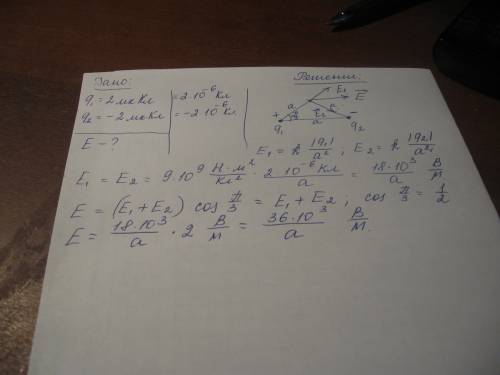 Дано:
q₁ = 2 мкКл | = 2·10⁻⁶ Кл
q₂ = −2 мкКл | = −2·10⁻⁶ Кл
E − ?
Решение:
E₁
a a E⃗
+ E⃗₂ −
q₁ a q₂
E₁ = k |q₁|/a² ; E₂ = k |q₂|/a²
E₁ = E₂ = 9·10⁹ Н·м²/Кл² · 2·10⁻⁶ Кл/a = 18·10³/a В/м
E = (E₁ + E₂) cos π/3 = E₁ + E₂ ; cos π/3 = 1/2
E = 18·10³/a · 2 В/м = 36·10³/a В/м